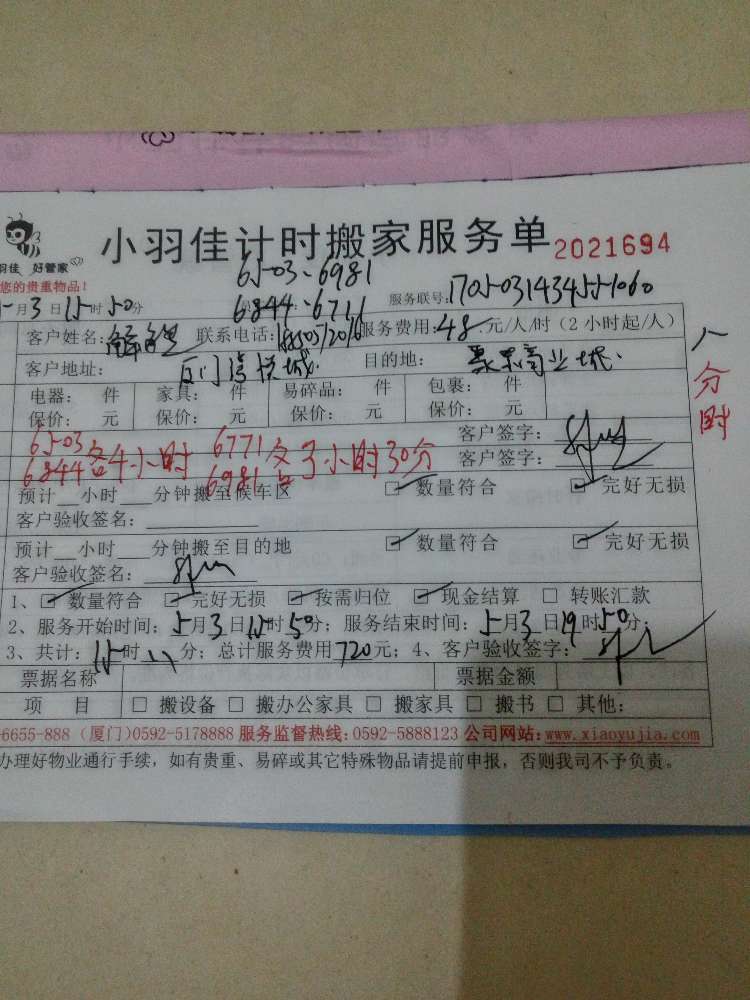 小羽佳计时搬家服务单 2021694
羽佳 好管家
您的贵重物品！
6503·6981
6844·6771
月3日15时50分 服务联号：1705031434551060
客户姓名： 联系电话： 服务费用：48元/人/时（2小时起/人）
客户地址： 目的地： 商业城
电器： 件 家具： 件 易碎品： 件 包裹： 件
保价： 元 保价： 元 保价： 元 保价： 元
6503 6771
6844各4小时 6981各3小时30分
八分时
客户签字：
客户签字：
预计__小时___分钟搬至候车区 ☑ 数量符合 ☑ 完好无损
客户验收签名：
预计__小时___分钟搬至目的地 ☑ 数量符合 ☑ 完好无损
客户验收签名：
1、☑ 数量符合 ☑ 完好无损 ☑ 按需归位 ☑ 现金结算 □ 转账汇款
2、服务开始时间：5月3日15时50分；服务结束时间：5月3日19时50分；
3、共计：15时八分；总计服务费用720元；4、客户验收签字：
票据名称 票据金额
项 目 □ 搬设备 □ 搬办公家具 □ 搬家具 □ 搬书 □ 其他：
-6655-888（厦门）0592-5178888 服务监督热线：0592-5888123 公司网站：www.xiaoyujia.com
办理好物业通行手续，如有贵重、易碎或其它特殊物品请提前申报，否则我司不予负责。